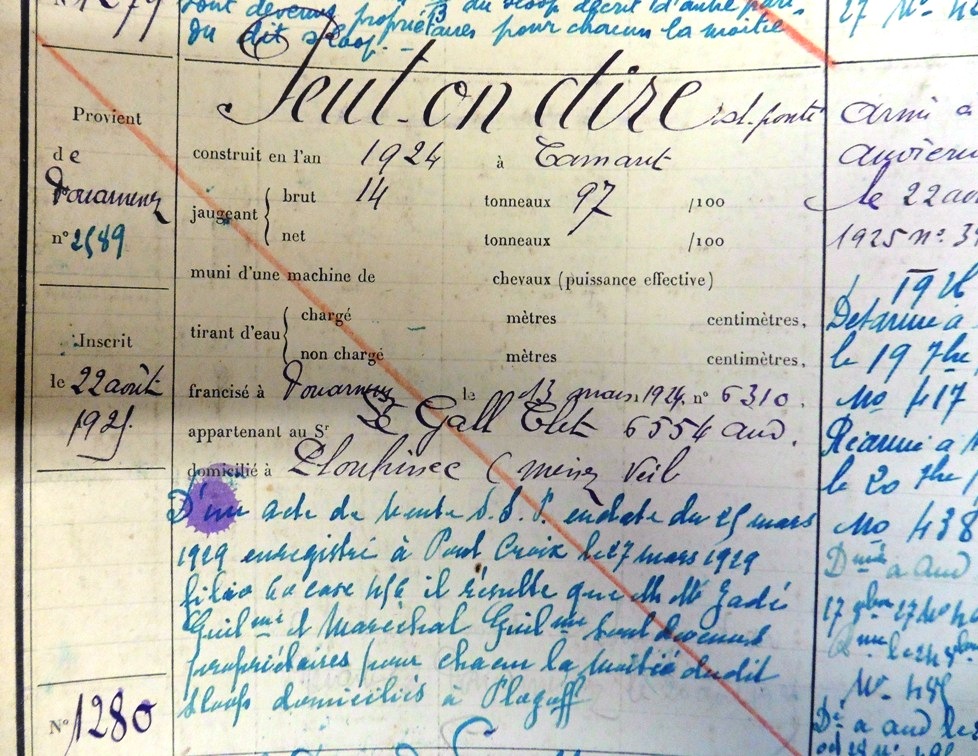 N° 1279
sont devenus propriétaires pour chacun la moitié
du dit sloop.
27 N°
Peut-on dire sl. ponté
Provient
de
Douarnenez
n° 2589
Inscrit
le 22 août
1925.
N° 1280
construit en l'an 1924 à
jaugeant brut 14 tonneaux 97 /100
net tonneaux /100
muni d'une machine de chevaux (puissance effective)
tirant d'eau chargé mètres centimètres,
non chargé mètres centimètres,
francisé à Douarnenez le 13 mars 1924. n° 6310.
appartenant au Sr Le Gall 6554 Aud.
domicilié à Plouhinec (Menez Veil
D'un acte de vente S.S.P. en date du 25 mars
1929 enregistré à Pont Croix le 27 mars 1929
folio 60 case 454 il résulte que M M Gadé
Guilme et Maréchal Guilme sont devenus
propriétaires pour chacun la moitié dudit
sloop domiciliés à Plogoff
Armé a
Audiern
le 22 aoû
1925 n° 3
1926
Désarmé a
le 19 7bre
No 417
Réarmé a
le 20 7bre
No 438
Dmé a Aud
17 9bre 27 N°
le 24 9bre
N° 455
Dé a aud le